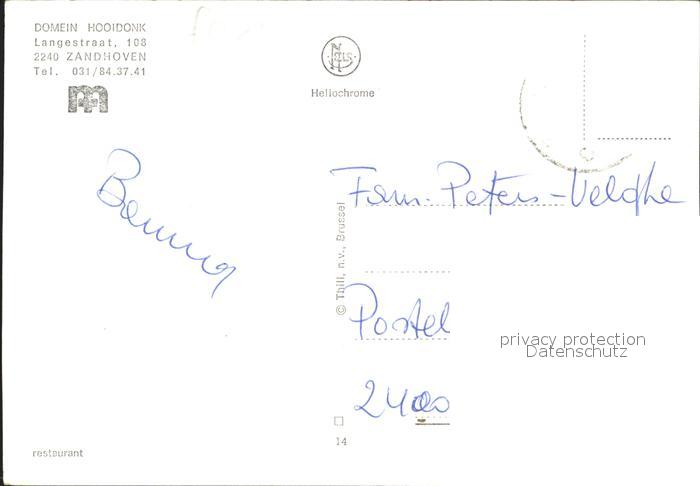 DOMEIN HOOIDONK
Langestraat, 108
2240 ZANDHOVEN
Tel. 031/84.37.41
NELS
Heliochrome
Fam. Peters-Velghe
© Thill, n.v., Brussel
Postel
2400
privacy protection
Datenschutz
14
restaurant